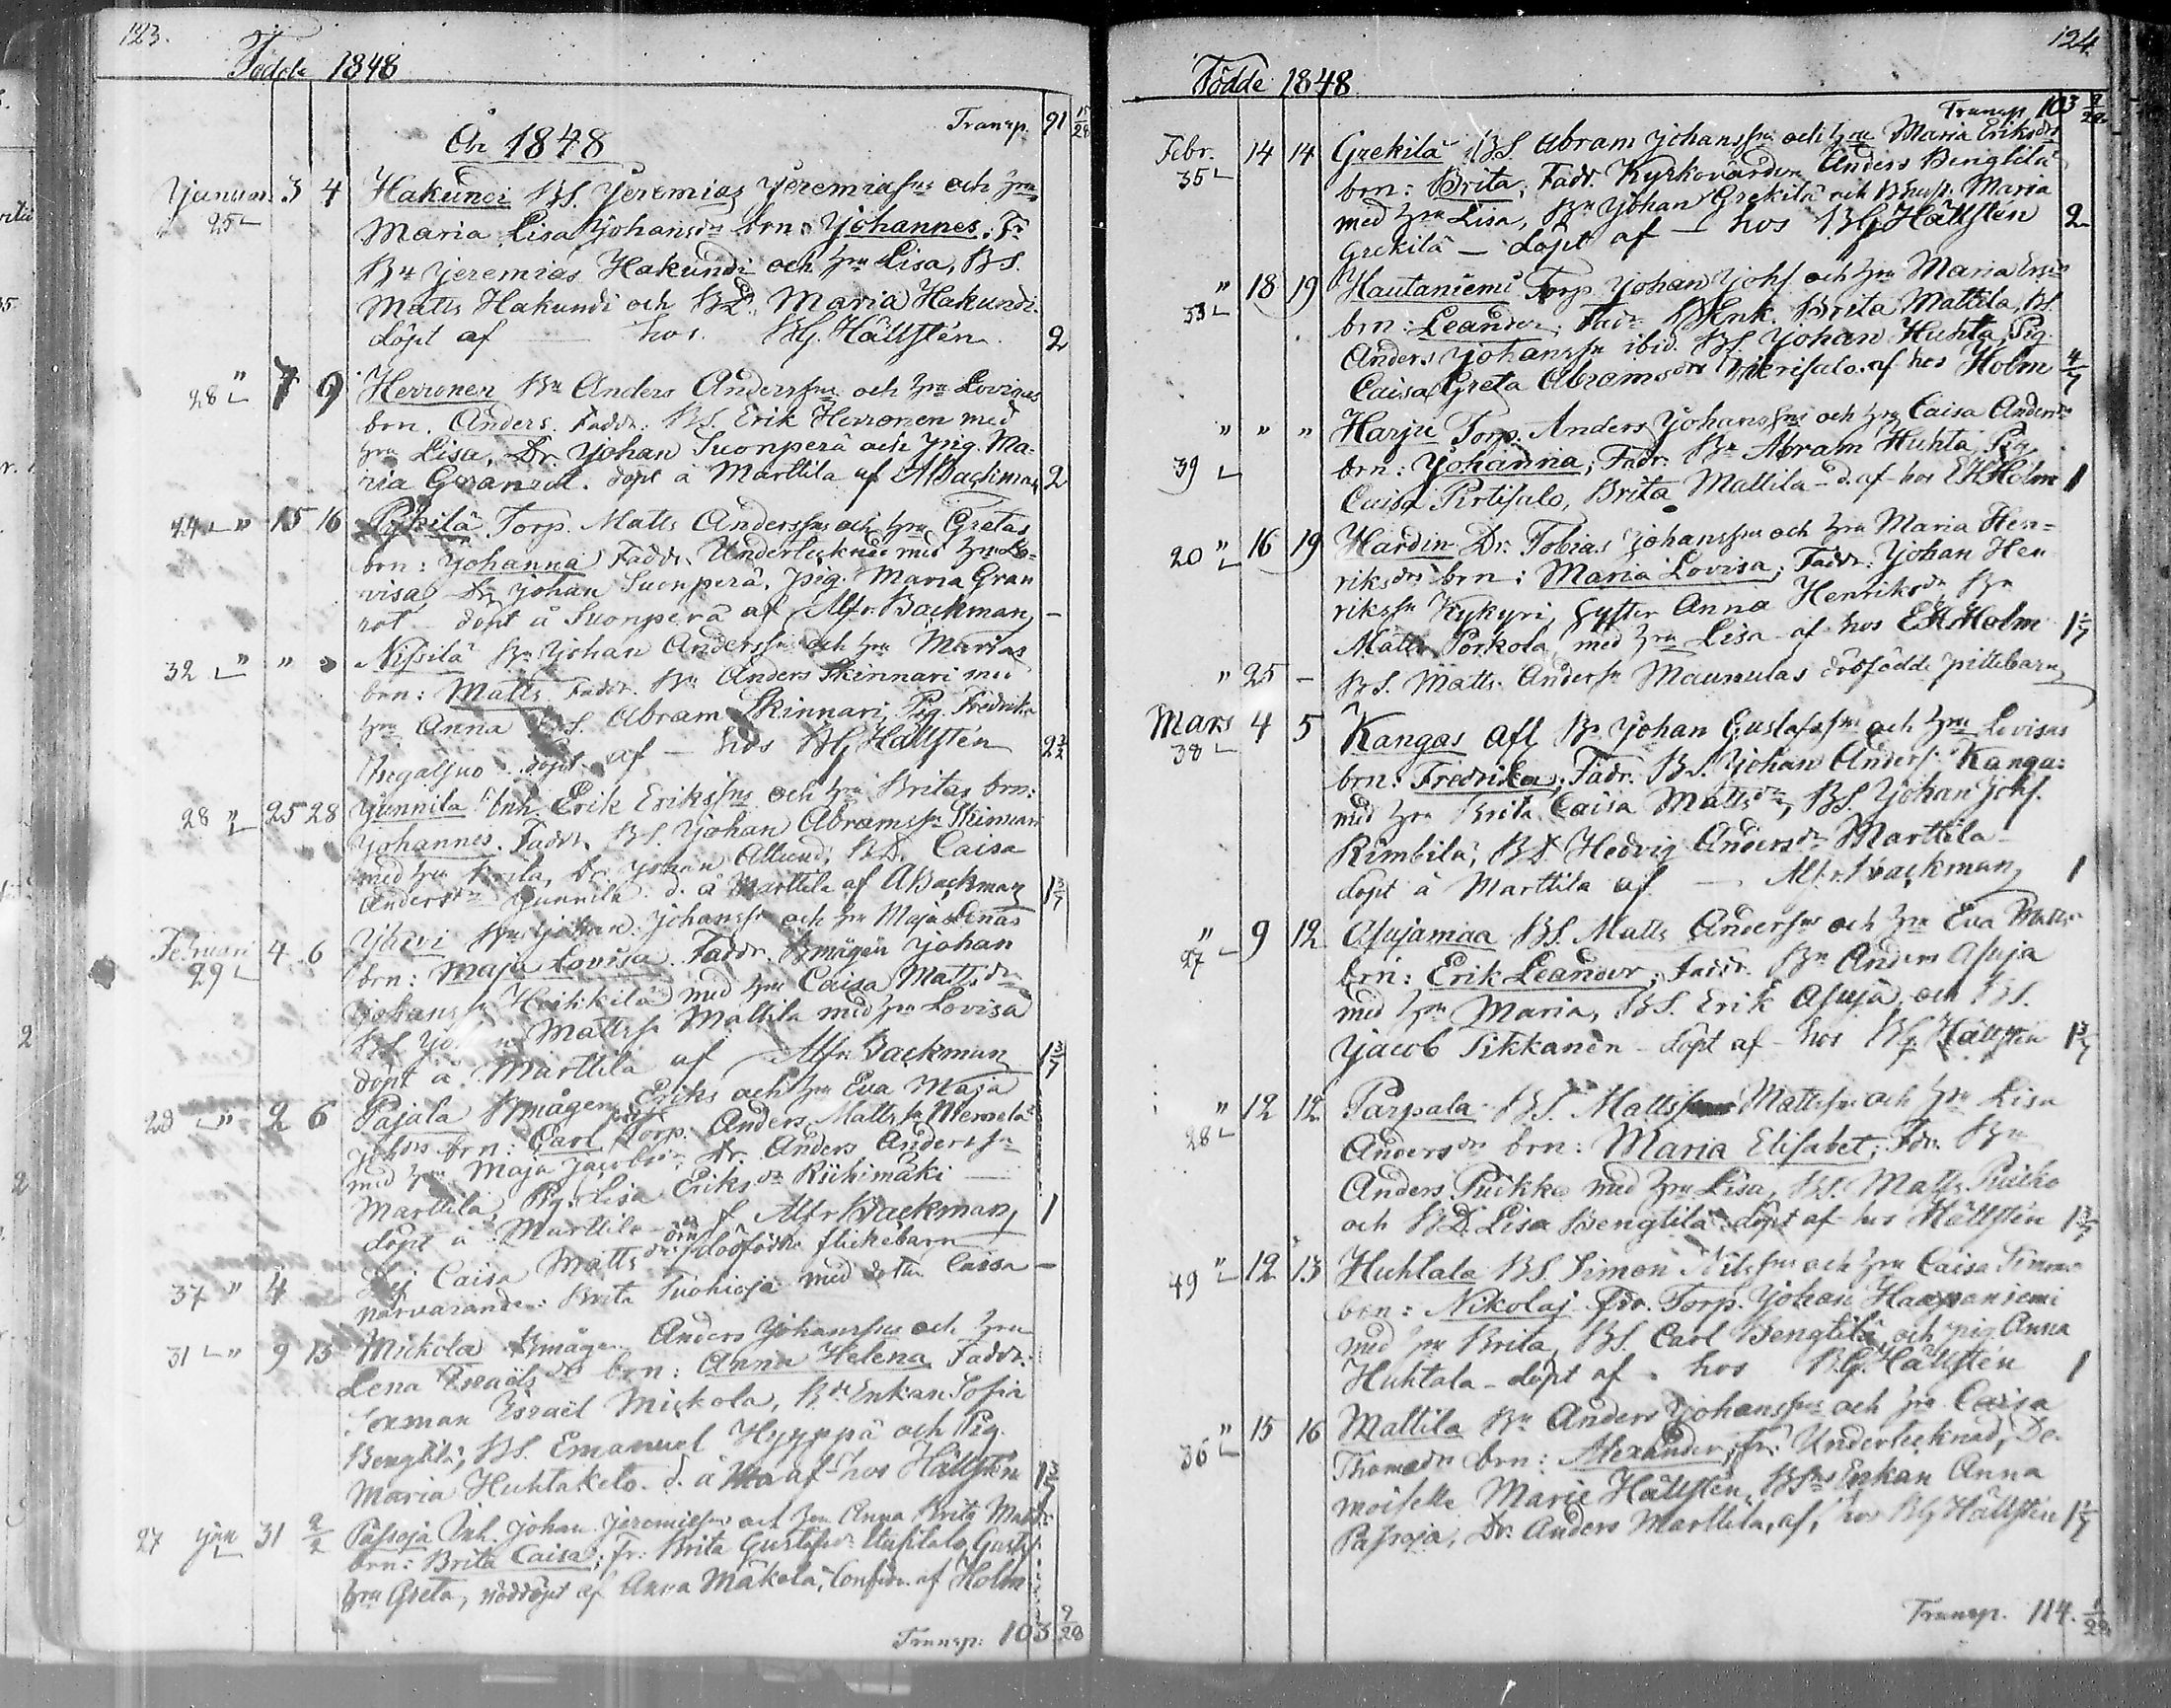 123.
Födde 1848
Transp. 91 15/28
År 1848
Januari 3 4 Hakundi BS. Jeremias Jeremiassns och hru
25 Maria Lisa Johansdrs brn: Johannes. Fr
Bn Jeremias Hakundi och hru Lisa, BS.
Matts Hakundi och BD. Maria Hakundi.
döpt af — hos. BG. Hällstén 2
28 " 7 9 Herronen Bn Anders Anderssns och hru Lovisas
brn. Anders. Faddr: BS. Erik Herronen med
hru Lisa, Dr. Johan Suonperä och pig. Ma-
ria Granrot. döpt å Marttila af ABackman 2
44 " 15 16 Pykilä Torp. Matts Anderssns och hru Gretas
brn: Johanna Faddr. Undertecknad med hru Lo-
visa, Dr Johan Suonperä, pig. Maria Gran
rot döpt å Suonperä af Alfr. Backman —
32 " " " Nissilä Bn Johan Anderssns och hru Marias
brn: Matts Faddr. Bn Anders Skinnari med
hru Anna BS. Abram Skinnari, Pig. Fredrika
döpt af — hos BG Hällstén 2
28 " 25 28 Junnila Inh. Erik Erikssns och hru Britas brn:
Johannes. Faddr. BS. Johan Abramssn Skinnari
med hru Brita, Dr. Johan Allund, BD. Caisa
Andersdr Junnila d. å Marttila af ABackman 1 3/7
Februari 4 6 Johan Johanssns och hru Maja Lenas
29 brn: Maja Lovisa. Faddr. Bmågen Johan
Johanssn Heikkilä med hru Caisa Mattsdr
BS. Johan Mattssn Mattila med hru Lovisa
döpt å Marttila af Alfr. Backman 1 3/7
" 2 6 Pajala Bmågen Eriks och hru Eva Maja
Johdrs brn: Carl Torp. Anders Mattssn Niemelä
med hru Maja Jacobsdr, Dr. Anders Anderssn
Marttila, Pig. Lisa Eriksdr Riihimäki —
döpt å Marttila af Alfr Backman, 1
37 " 4 Caisa Mattsdrs dödfödda flickebarn
närvarande: Brita Tuohioja med dotter Caisa —
31 " 9 13 Mickola Bmågen Anders Johanssns och hru
Lena Israëlsdrs brn: Anna Helena Faddr:
Sexman Israël Mickola, BdeEnkan Sofia
Bengtilä, BS. Emanuel Hyyppä och Pig.
Maria Huhtaketo. d. å af hos Hällstén 1 3/7
27 Jan 31 2/2 Passoja Inh. Johan Jeremiassns och hru Anna Brita Mattsdrs
brn: Brita Caisa; fr: Brita Gustafsdr
hru Greta, nöddöpt af Anna Mäkelä, Confirm. af Holm
Transp: 103 9/28
124
Födde 1848
Transp 103 9/28
Febr. 14 14 Grekilä BS. Abram Johanssns och hru Maria Eriksdrs
35 brn: Brita, Fadr. Kyrkovärden Anders Bengtilä
med hru Lisa, Bn Johan Grekilä och Maria
Grekilä — döpt af — hos BG Hällstén 2
" 18 19 Hautaniemi Torp Johan Johs och hru Maria
33 brn: Leander; Fadr BEnk. Brita Mattila, BS.
Anders Johanssn ibid. BS Johan Huhta, Pig
Caisa Greta Abramsdr af hos Holm 4/7
" " " Harju Torp. Anders Johanssns och hru Caisa Andersdrs
39 brn: Johanna; Fadr: Bn Abram Huhta, Pig
Caisa Pirtisalo, Brita Mattila — d. af hos EHHolm 1
20 " 16 19 Hardin Dr. Tobias Johanssns och hru Maria Hen=
riksdrs brn: Maria Lovisa; Fadr: Johan Hen
rikssn Kykyri, Syster Anna Henriksdr, Bn
Matts Porkola, med hru Lisa af hos EHHolm
" 25 — BS. Matts Anderssn Maunulas dödfödda piltebarn
Mars 4 5 Kangas afl Bn Johan Gustafssns och hru Lovisas
38 brn: Fredrika; Fadr. BS. Johan Anderss. Kangas
med hru Brita Caisa Mattsdr, BS. Johan Johs.
Rimbilä, BD. Hedvig Andersdr Marttila
döpt å Marttila af — Alfr. Backman, 1
" 9 12 Asujamaa BS. Matts Anderssns och hru Eva
27 brn: Erik Leander; Fadr. Bn Anders Asuja
med hru Maria, BS. Erik Asuja, och BS.
Jacob Tikkanen — döpt af — hos BG Hällstén 1 3/7
" 12 12 Parpala BS. Matts Mattssns och hru Lisa
28 Andersdrs brn: Maria Elisabet; Fdr. Bn
Anders Puikko med hru Lisa, BS. Matts Puikko
och BD. Lisa Bengtilä döpt af hos Hällstén 1 3/7
" 12 13 Huhtala BS. Simon Nilssns och hru Caisa Simons
49 brn: Nikolaj fdr. Torp. Johan Haapaniemi
med hru Brita, BS. Carl Bengtilä, och pig. Anna
Huhtala — döpt af — hos BG. Hällstén 1
" 15 16 Mattila Bn Anders Johanssns och hru Caisa
36 Thomasdrs brn: Alexander; fr: Undertecknad, De-
moiselle Marie Hällstén, Enkan Anna
Passoja, Dr. Anders Marttila, af, hos BG Hällstén
Transp. 114. 1/28